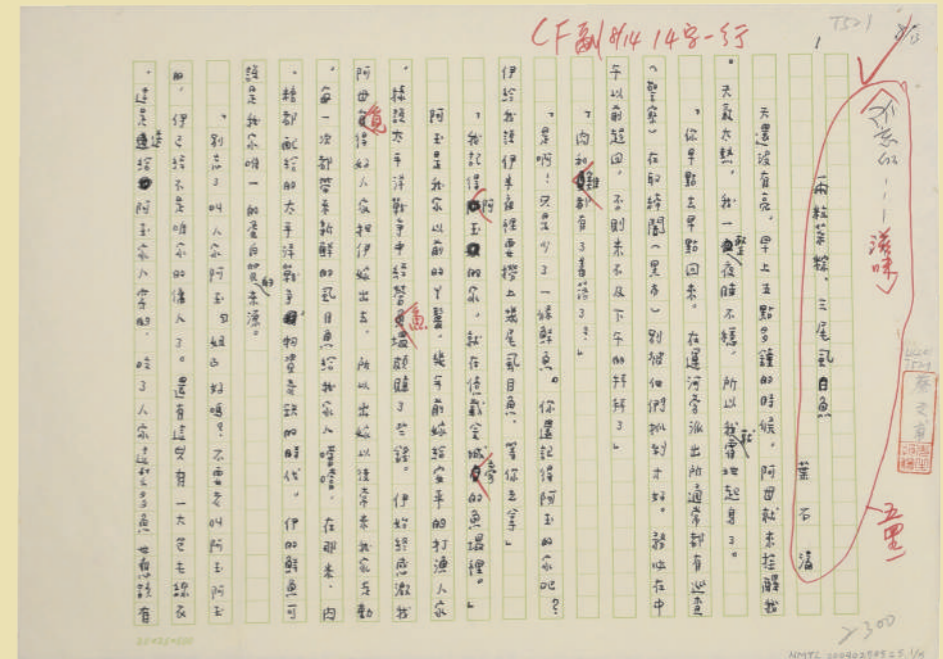 CF副 8/14 14字一行
T521
1
不忘的---滋味
兩粒菜粽,三尾虱目魚
葉石濤
天還沒有亮,早上五點多鐘的時候,阿母就來搖醒我
。天氣太熱,我一整夜睡不穩,所以我就起身了。
「你早點去早點回來。在運河旁派出所通常都有巡查
(警察)在取締闇(黑市)別被他們抓到才好。務必在中
午以前趕回,否則來不及下午的拜拜了」
「肉和雞都有了着落了?」
「是啊!只是少了一樣鮮魚。你還記得阿玉的家吧?
伊給我講伊半夜裡要撈上幾尾虱目魚,等你去拿」
「我記得阿玉的家,就在億載金城旁的魚塭裡。」
阿玉是我家以前的丫鬟,幾年前嫁給安平的打漁人家
,據說太平洋戰爭中經營魚塭頗賺了些錢。伊始終感激我
阿母覓得好人家把伊嫁出去,所以出嫁以後常來我家走動
,每一次都帶來新鮮的虱目魚給我家人嚐嚐。在那米、肉
、糖都配給的太平洋戰爭物資缺的時代,伊的鮮魚可
說是我家唯一的蛋白質的來源。
「別忘了叫人家阿玉姐好嗎?不要老叫阿玉阿玉
的,伊已經不是咱家的傭人了。還有這兒有一大包毛線衣
,這是送給阿玉家人穿的。吃了人家這麼多魚也應該有
五里
>300
NMTL 20040250525 1/4